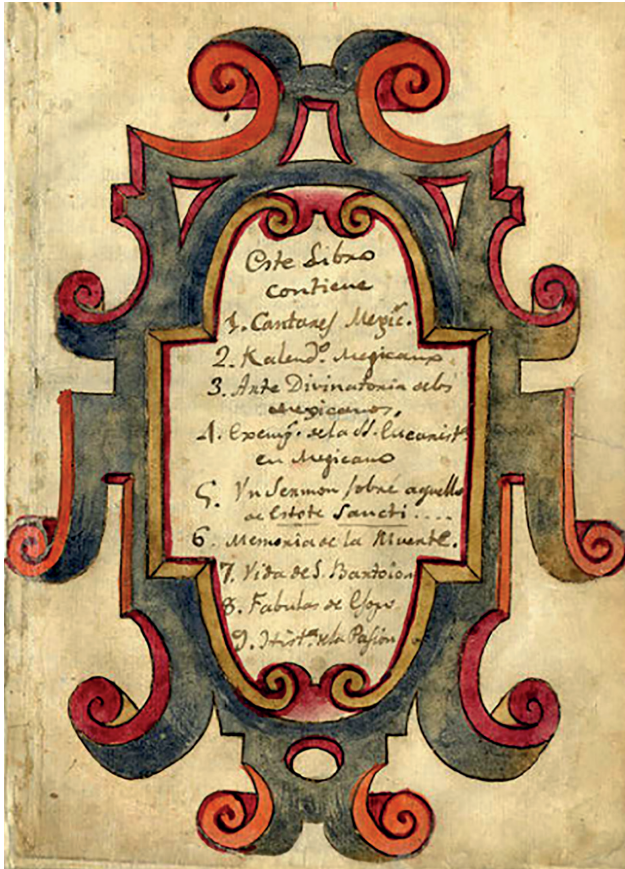 Este Libro
contiene
1. Cantares Mexic.
2. Kalendo. Megicano.
3. Arte Divinatoria delos
mexicanos.
4. Exemp. de la SS. Eucarista
en Megicano
5. Vn Sermon sobre aquello
de Estote Sancti ....
6. Memoria de la Muerte.
7. Vida de S. Bartolon
8. Fabulas de Esopo
9. Hista. dela Pasión